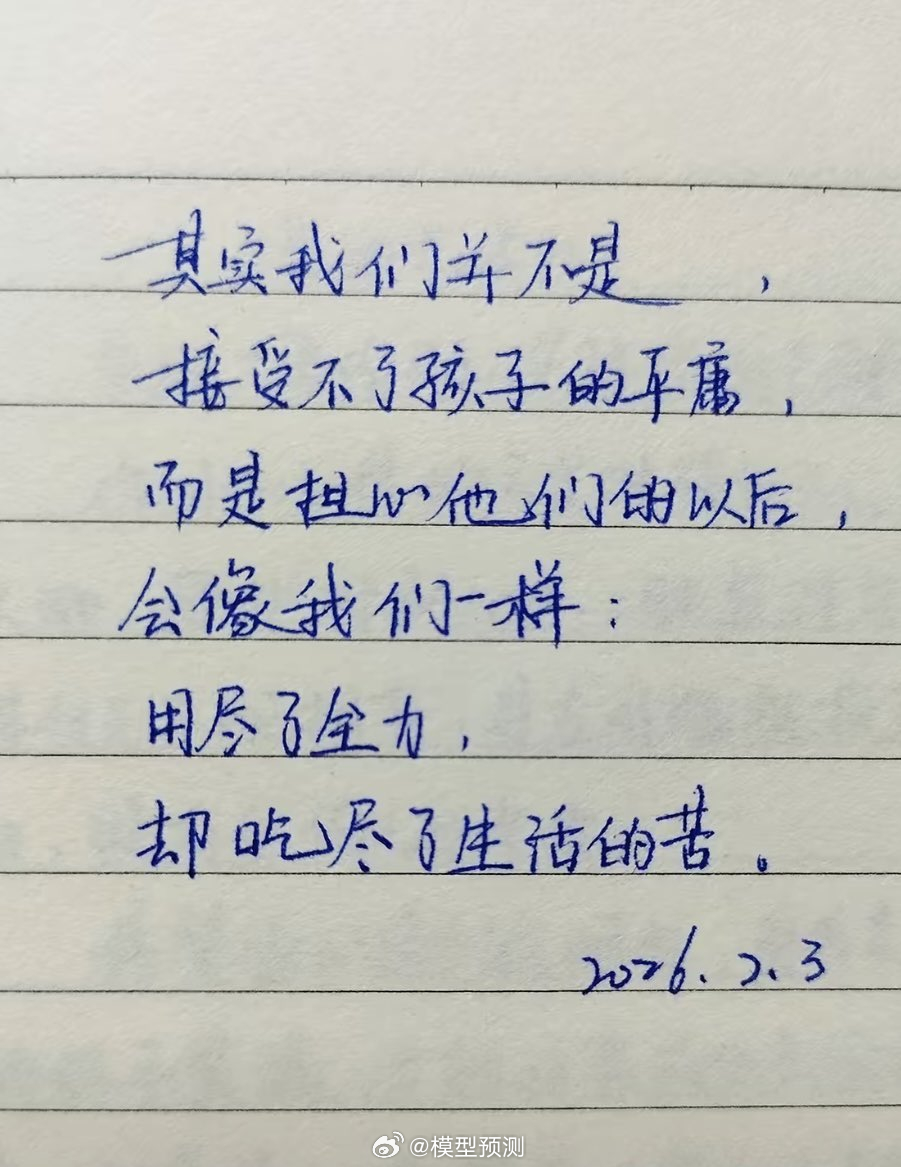 其实我们并不是，
接受不了孩子的平庸，
而是担心他们的以后，
会像我们一样：
用尽了全力，
却吃尽了生活的苦。
2026.2.3
@模型预测